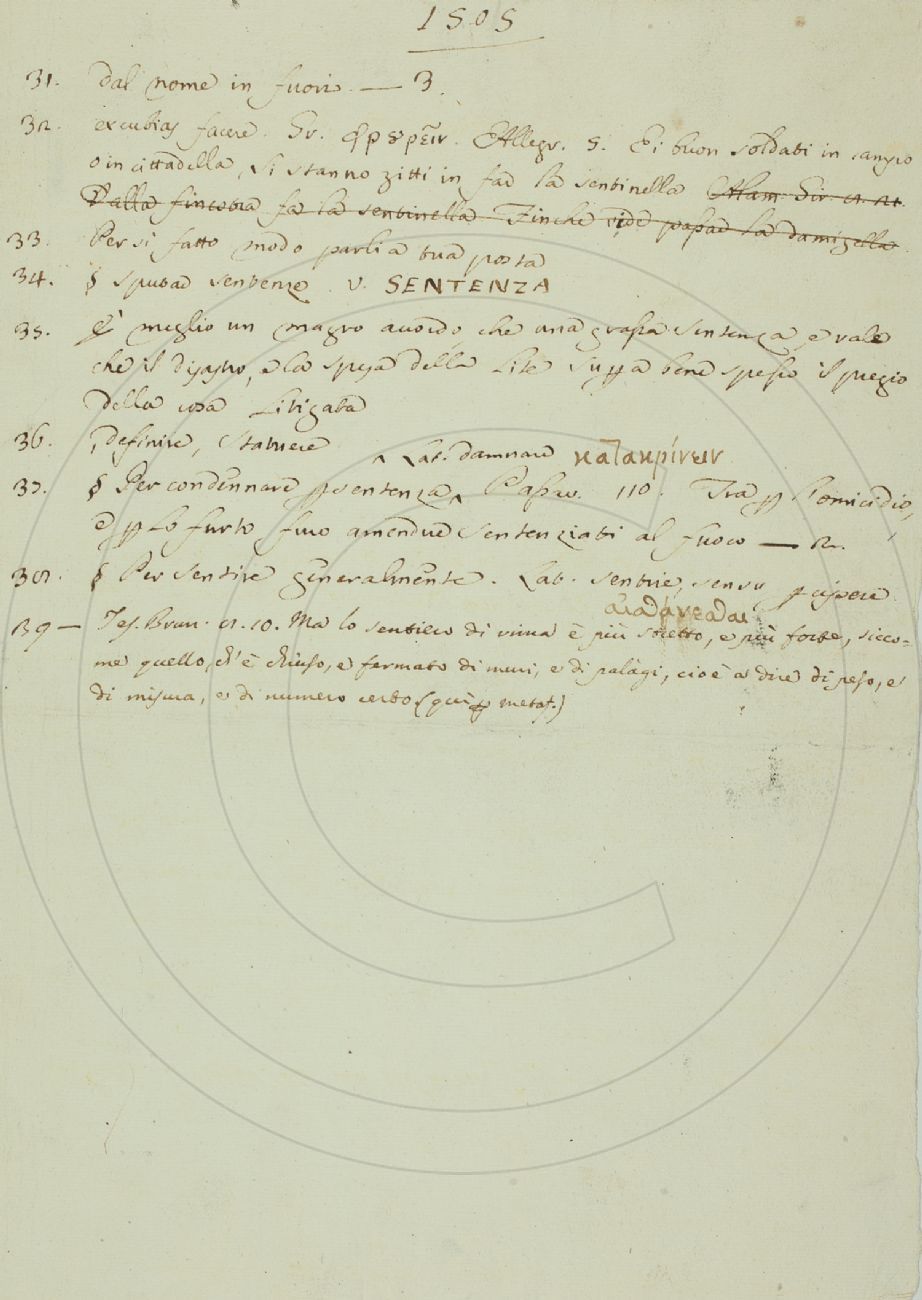 1505
31. dal nome in fuori. — 3.
32. excubias facere. Gr. φρουρεῖν. Allegr. 5. Ei buon soldati in campo
o in cittadella, si stanno zitti in far la sentinella Alam. Gir. 2. 21.
Dalla far la sentinella Finchè vide passar la damigella
33. Per si fatto modo parli a tua posta
34. § sputar sentenze. V. SENTENZA
35. È meglio un magro accordo che una grassa sentenza, e vale
che il disagio, e la spesa della Lite supa bene spesso il pregio
della cosa Litigata
36. definire, statuere
^ Lat. damnare κατακρίνειν
37. § Per condennare p sentenza ^ Passav. 110. Tra p l'omicidio,
e p lo furto furo amendue sentenziati al fuoco — 2.
38. § Per sentire generalmente. Lat. sentire, sensu pcipere
αἰσθάνεσθαι
39 — Tes. Brun. 8. 10. Ma lo sentiero di rima è più stretto, e più forte, sicco-
me quello, ch'è chiuso, e fermato di muri, e di palagi, cioè a dire di peso, e
di misura, e di numero certo (qui p metaf.)